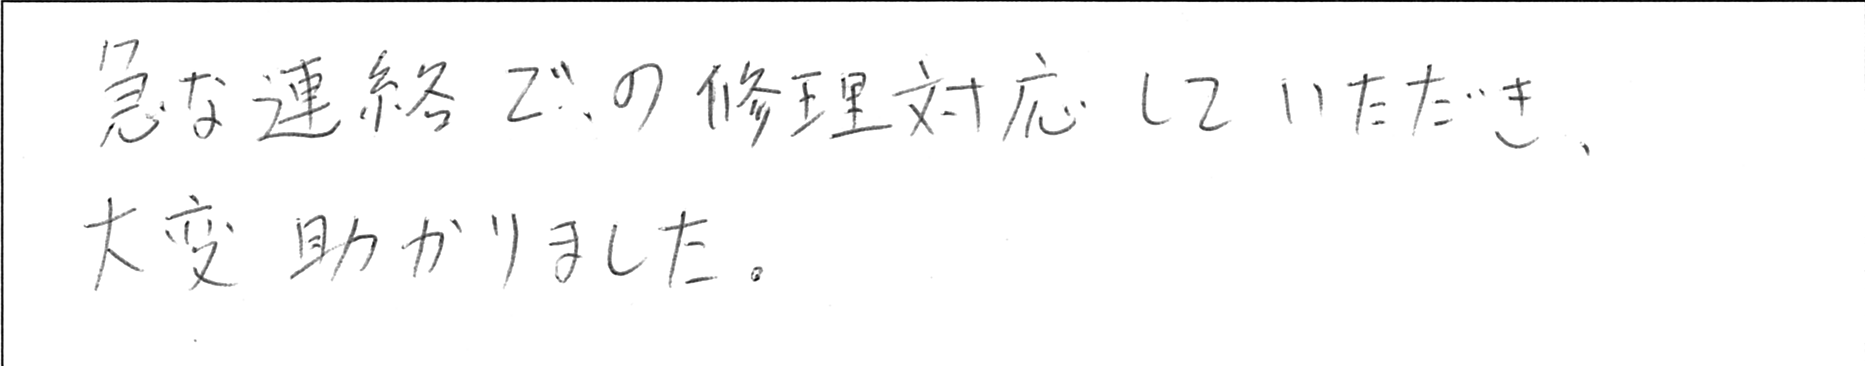 急な連絡での修理対応していただき、
大変助かりました。